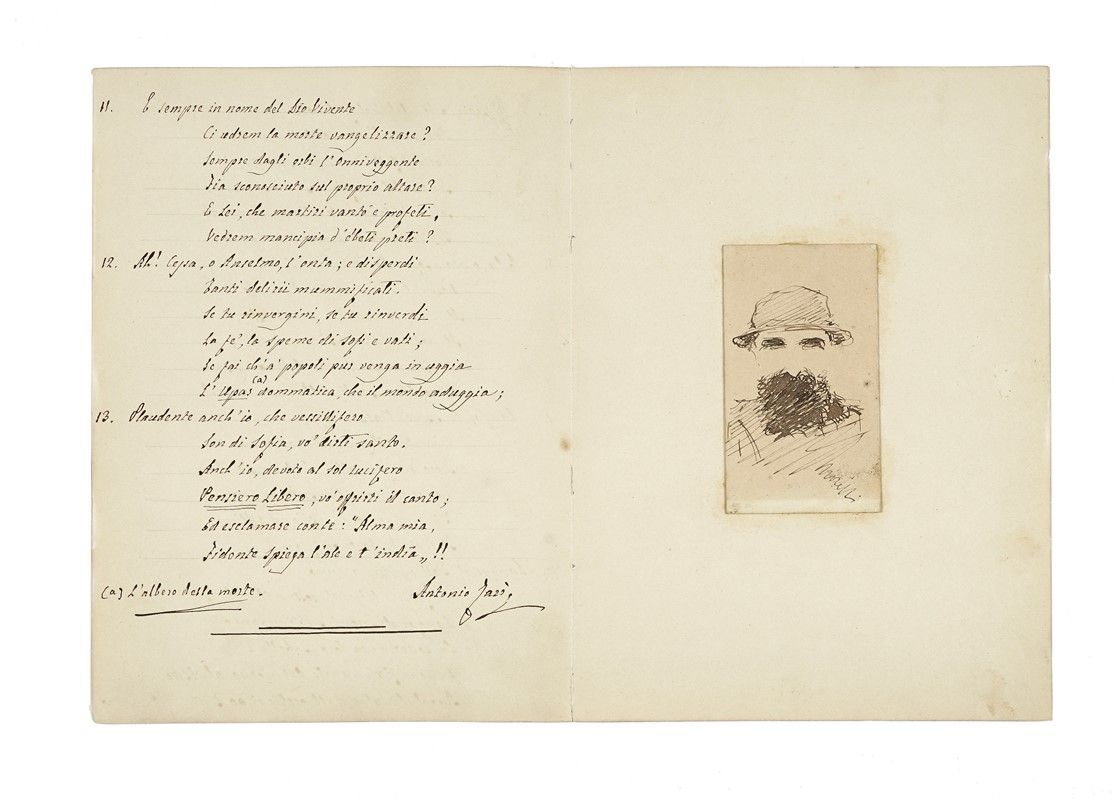 11. E sempre in nome del Dio Vivente
Ci udrem la morte vangelizzare?
Sempre dagli orbi l'Onniveggente
Fia sconosciuto sul proprio altare?
E Lei, che martiri vantò e profeti,
Vedrem mancipia d'ebeti preti?
12. Ah! Cessa, o Anselmo, l'onta; e disperdi
Tanti delirii mummificati.
Se tu rinvergini, se tu rinverdi
La fè, la speme di sofi e vati;
Se fai ch'a' popoli pur venga in uggia
L'Upas (a) dommatica, che il mondo aduggia;
13. Plaudente anch'io, che vessillifero
Son di Sofia, vo' dirti santo.
Anch'io, devoto al sol lucifero
Pensiero Libero, vo' offrirti il canto;
Ed esclamare con te: "Alma mia,
Fidente spiega l'ale e t'india„!!
(a) L'albero della morte.
Antonio
Morelli